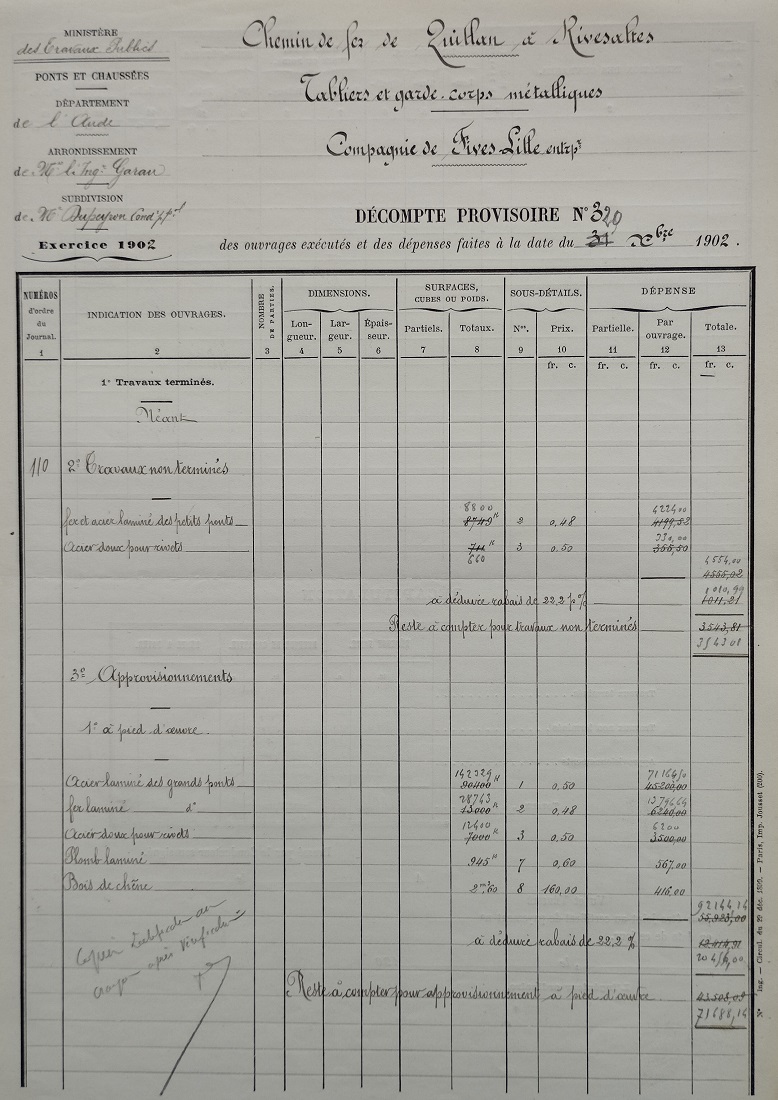 MINISTÈRE
des Travaux Publics
PONTS ET CHAUSSÉES
DÉPARTEMENT
de l'Aude
ARRONDISSEMENT
de Mr l'Ingr Garau
SUBDIVISION
de Mr Dupeyron Condr
Exercice 1902
Chemin de fer de Quillan à Rivesaltes
Tabliers et garde-corps métalliques
Compagnie de Fives-Lille entrpr
DÉCOMPTE PROVISOIRE N° 3
des ouvrages exécutés et des dépenses faites à la date du 31 Xbre 1902.
NUMÉROS d'ordre du Journal. 1
INDICATION DES OUVRAGES. 2
NOMBRE DE PARTIES. 3
DIMENSIONS.
Longueur. 4
Largeur. 5
Épaisseur. 6
SURFACES, CUBES OU POIDS.
Partiels. 7
Totaux. 8
SOUS-DÉTAILS.
Nos. 9
Prix. 10
DÉPENSE
Partielle. 11
Par ouvrage. 12
Totale. 13
fr. c. fr. c. fr. c. fr. c.
1° Travaux terminés.
Néant
110 2° Travaux non terminés
8800 4224,00
fer et acier laminé des petits ponts 8749k 2 0,48 4199,52
330,00
Acier doux pour rivets 711k 3 0.50 355,50
660 4554,00
4555,02
1010,99
à déduire rabais de 22,2 p% 1011.21
Reste à compter pour travaux non terminés 3543,81
3543 01
3° Approvisionnements
1° à pied d'œuvre.
142329 71164,50
Acier laminé des grands ponts 90400k 1 0,50 45200,00
28743 13796,64
fer laminé d° 13000k 2 0,48 6240,00
12400 6200
Acier doux pour rivets 7000k 3 0.50 3500,00
Plomb laminé 945k 7 0,60 567,00
Bois de chêne 2m3,60 8 160,00 416,00
92144,14
55.923,00
à déduire rabais de 22.2 % 12414,91
20456,00
Reste à compter pour approvisionnement à pied d'œuvre 43.508,09
71688,14
crayon après vérification
Ing. — Circul. du 29 déc. 1899. — Paris, Imp. Jousset (200).